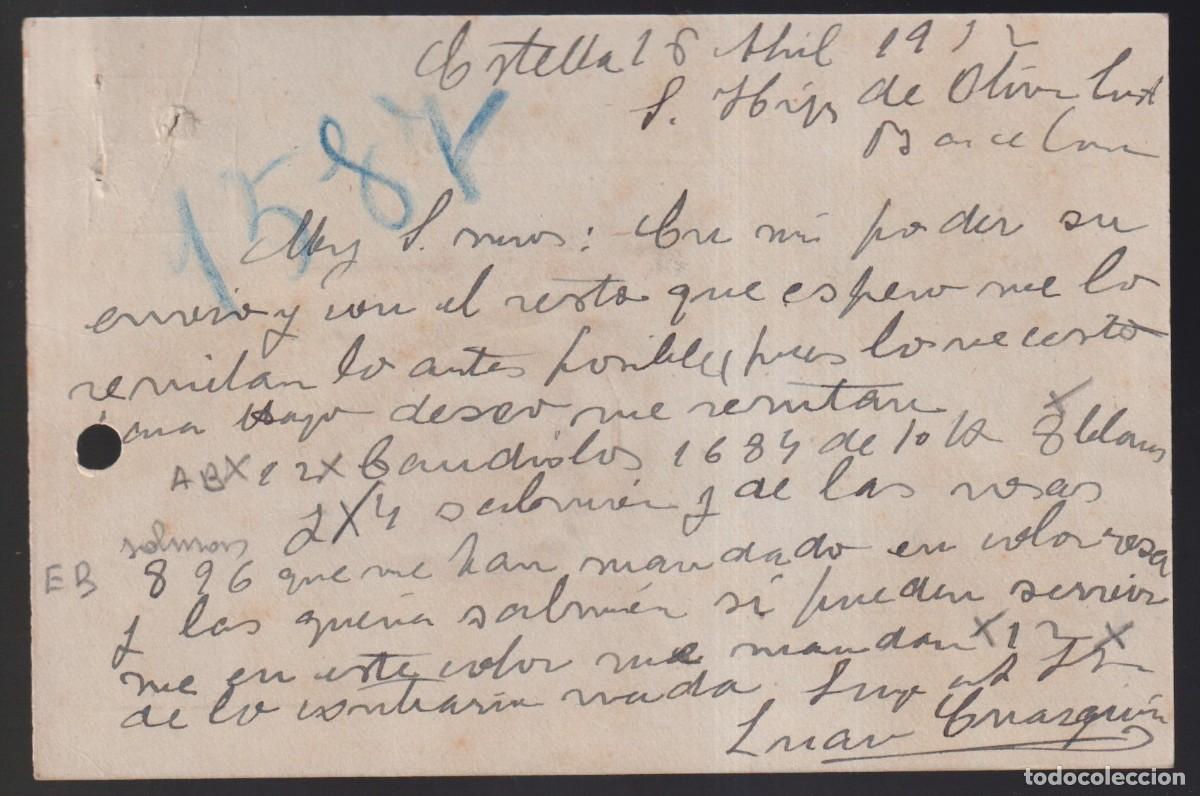 Estella 16 Abril 1912
S. Hijos de Oliva
Barcelona
1587
Muy S. mios: En mi poder su
envio y con el resto que espero me lo
remitan lo antes posible, pues lo necesito
hago deseo me remitan
AB X 12 X Candislos 1684 de 10 8 blancos
X 4 salmón y de las rosas
salmon
EB 896 que me han mandado en color rosa
y las queria salmón si pueden servir
me en este color me mandan X 12 X
de lo contrario nada. Suyo
Juan
todocoleccion